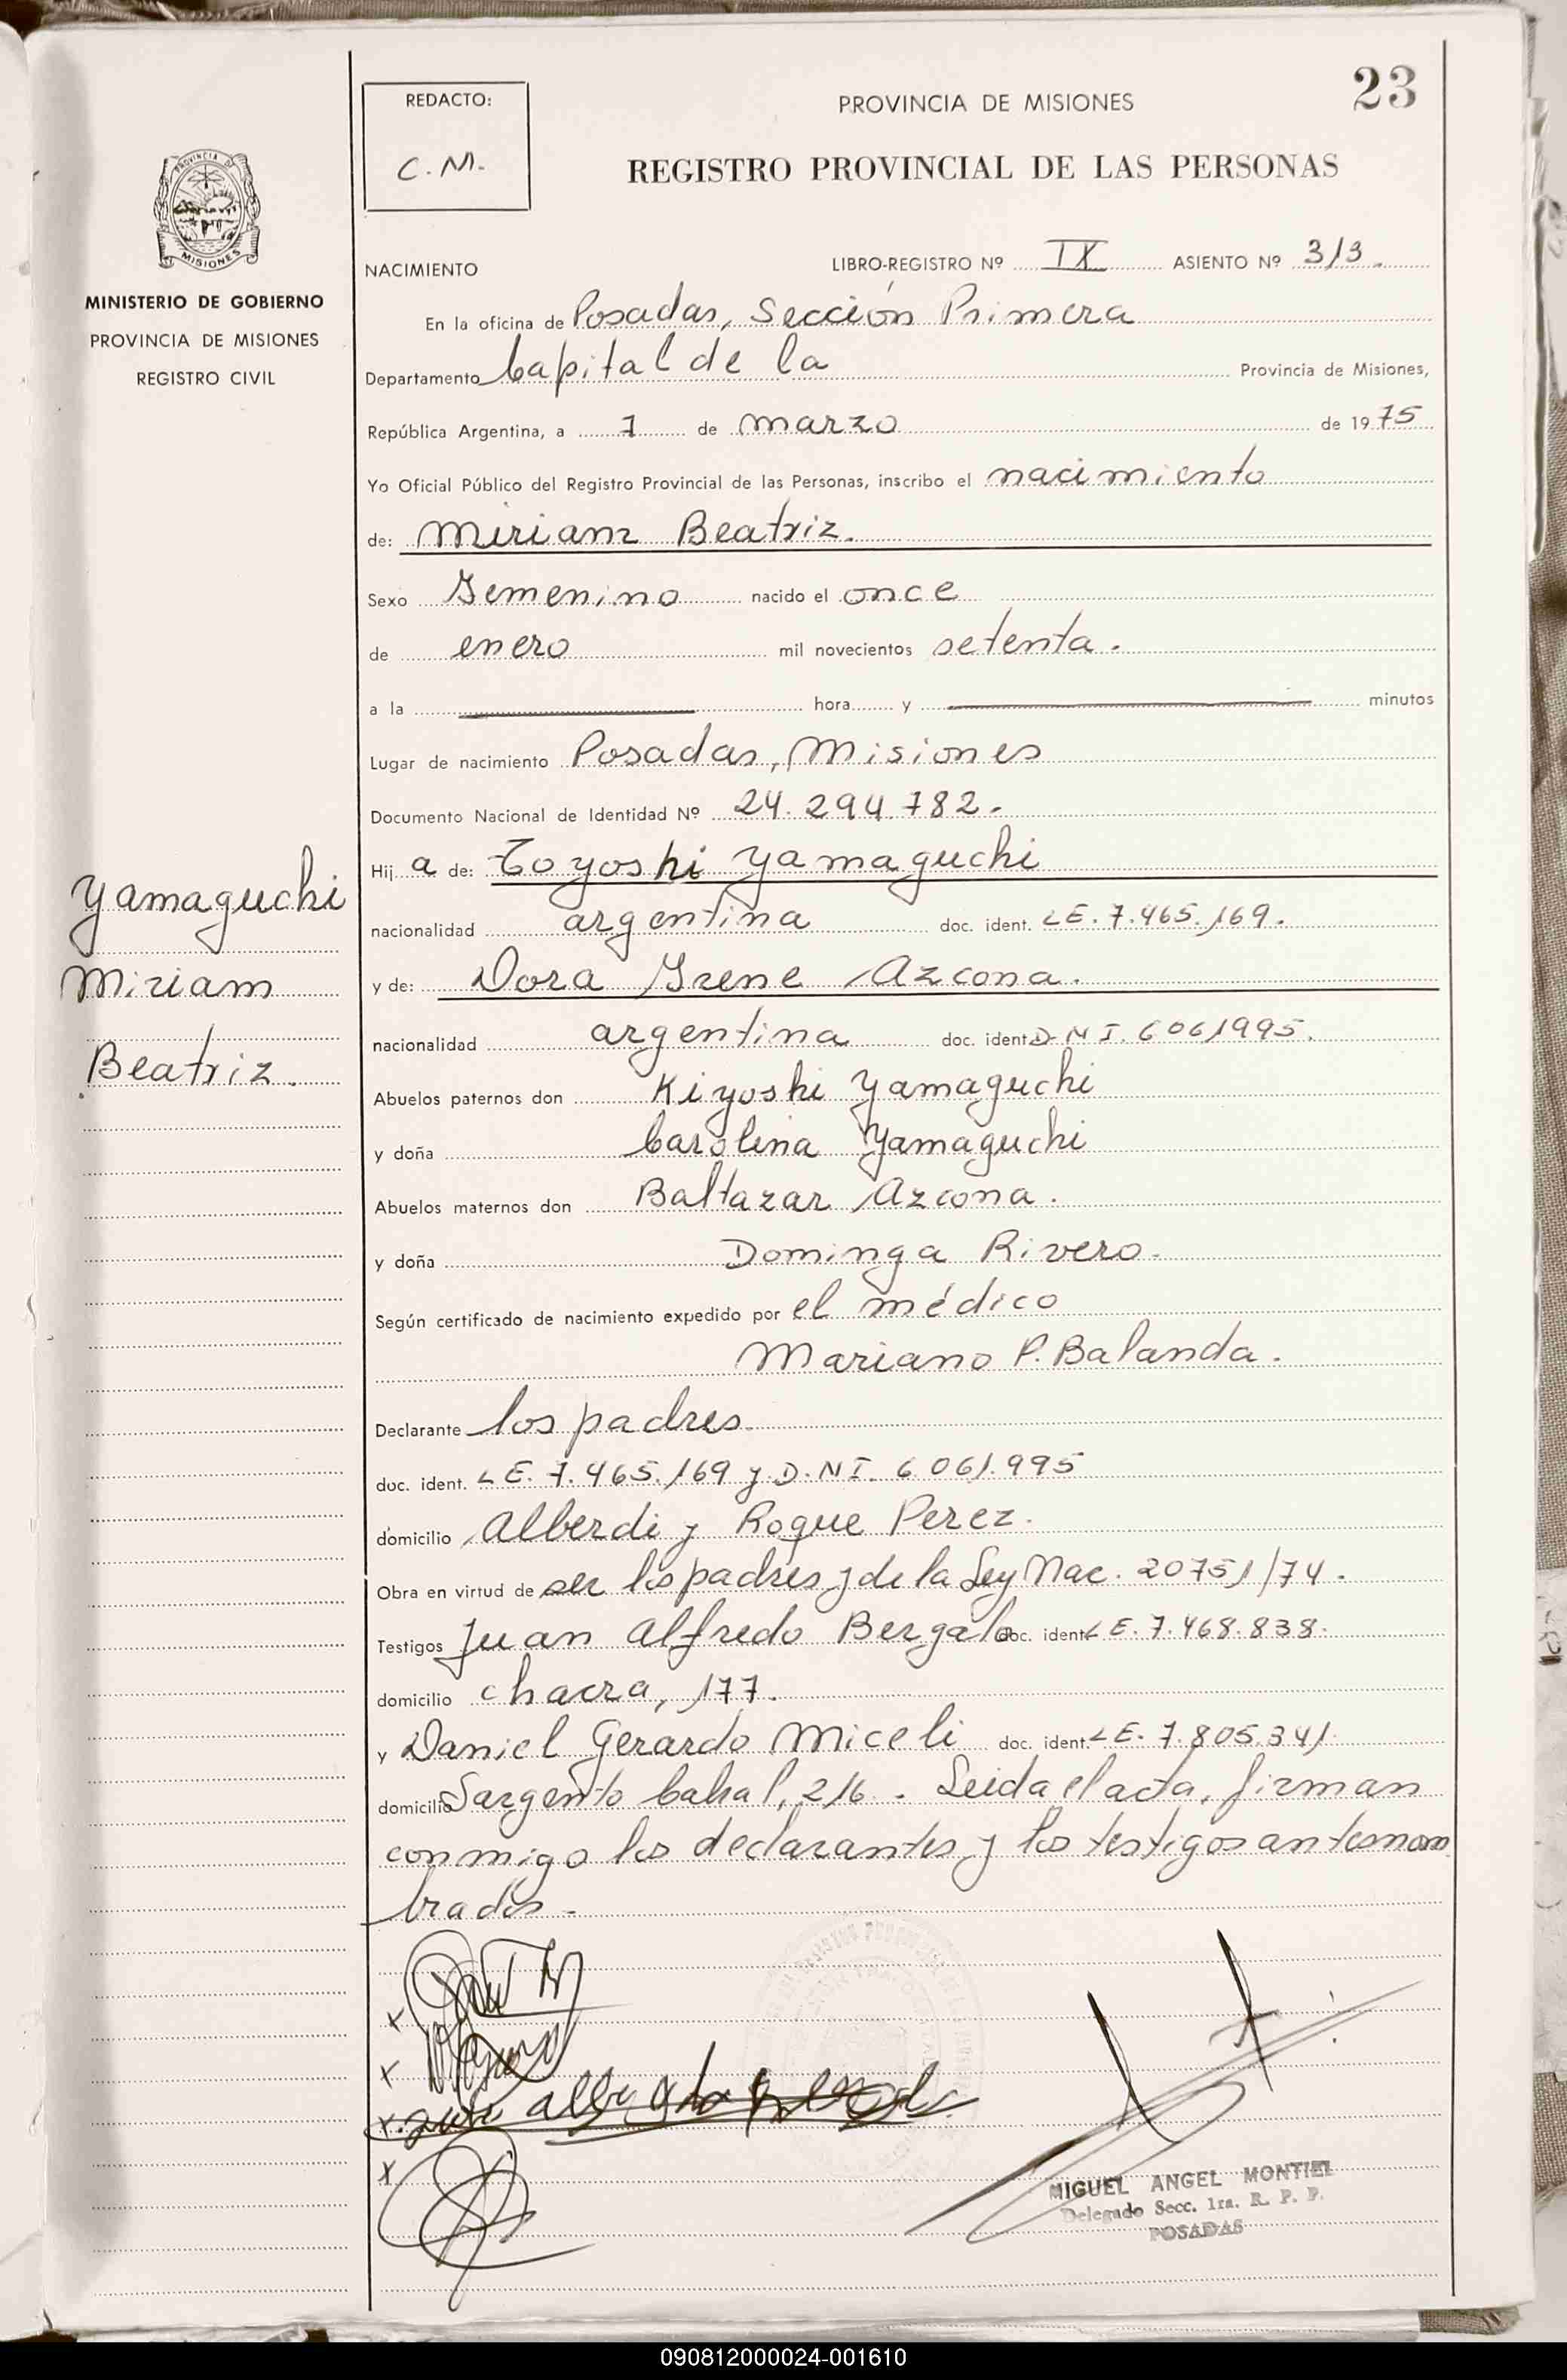 23
REDACTO:
C. M.
PROVINCIA DE MISIONES
REGISTRO PROVINCIAL DE LAS PERSONAS
PROVINCIA DE
MISIONES
MINISTERIO DE GOBIERNO
PROVINCIA DE MISIONES
REGISTRO CIVIL
NACIMIENTO LIBRO-REGISTRO Nº IX ASIENTO Nº 313.
En la oficina de Posadas, Sección Primera
Departamento Capital de la Provincia de Misiones,
República Argentina, a 7 de marzo de 1975
Yo Oficial Público del Registro Provincial de las Personas, inscribo el nacimiento
de: Miriam Beatriz.
Sexo Femenino nacido el once
de enero mil novecientos setenta.
a la hora y minutos
Lugar de nacimiento Posadas, Misiones
Documento Nacional de Identidad Nº 24.294.782.
Hij a de: Toyoshi Yamaguchi
nacionalidad argentina doc. ident. LE. 7.465.169.
y de: Dora Irene Azcona.
nacionalidad argentina doc. ident. D.N.I. 6061995.
Abuelos paternos don Kiyoshi Yamaguchi
y doña Carolina Yamaguchi
Abuelos maternos don Baltazar Azcona.
y doña Dominga Rivero.
Según certificado de nacimiento expedido por el médico
Mariano P. Balanda.
Declarante los padres.
doc. ident. LE. 7.465.169 y D.N.I. 6.061.995
domicilio Alberdi y Roque Perez.
Obra en virtud de ser los padres y de la Ley Nac. 20751/74.
Testigos Juan Alfredo Bergalo doc. ident. LE. 7.468.838.
domicilio chacra, 177.
y Daniel Gerardo Miceli doc. ident. LE. 7.805.341.
domicilio Sargento Cabral, 216. Leida el acta, firman
conmigo los declarantes y los testigos antesnom
brados.-
Yamaguchi
Miriam
Beatriz.
MIGUEL ANGEL MONTIEL
Delegado Secc. 1ra. R. P. P.
POSADAS
090812000024-001610